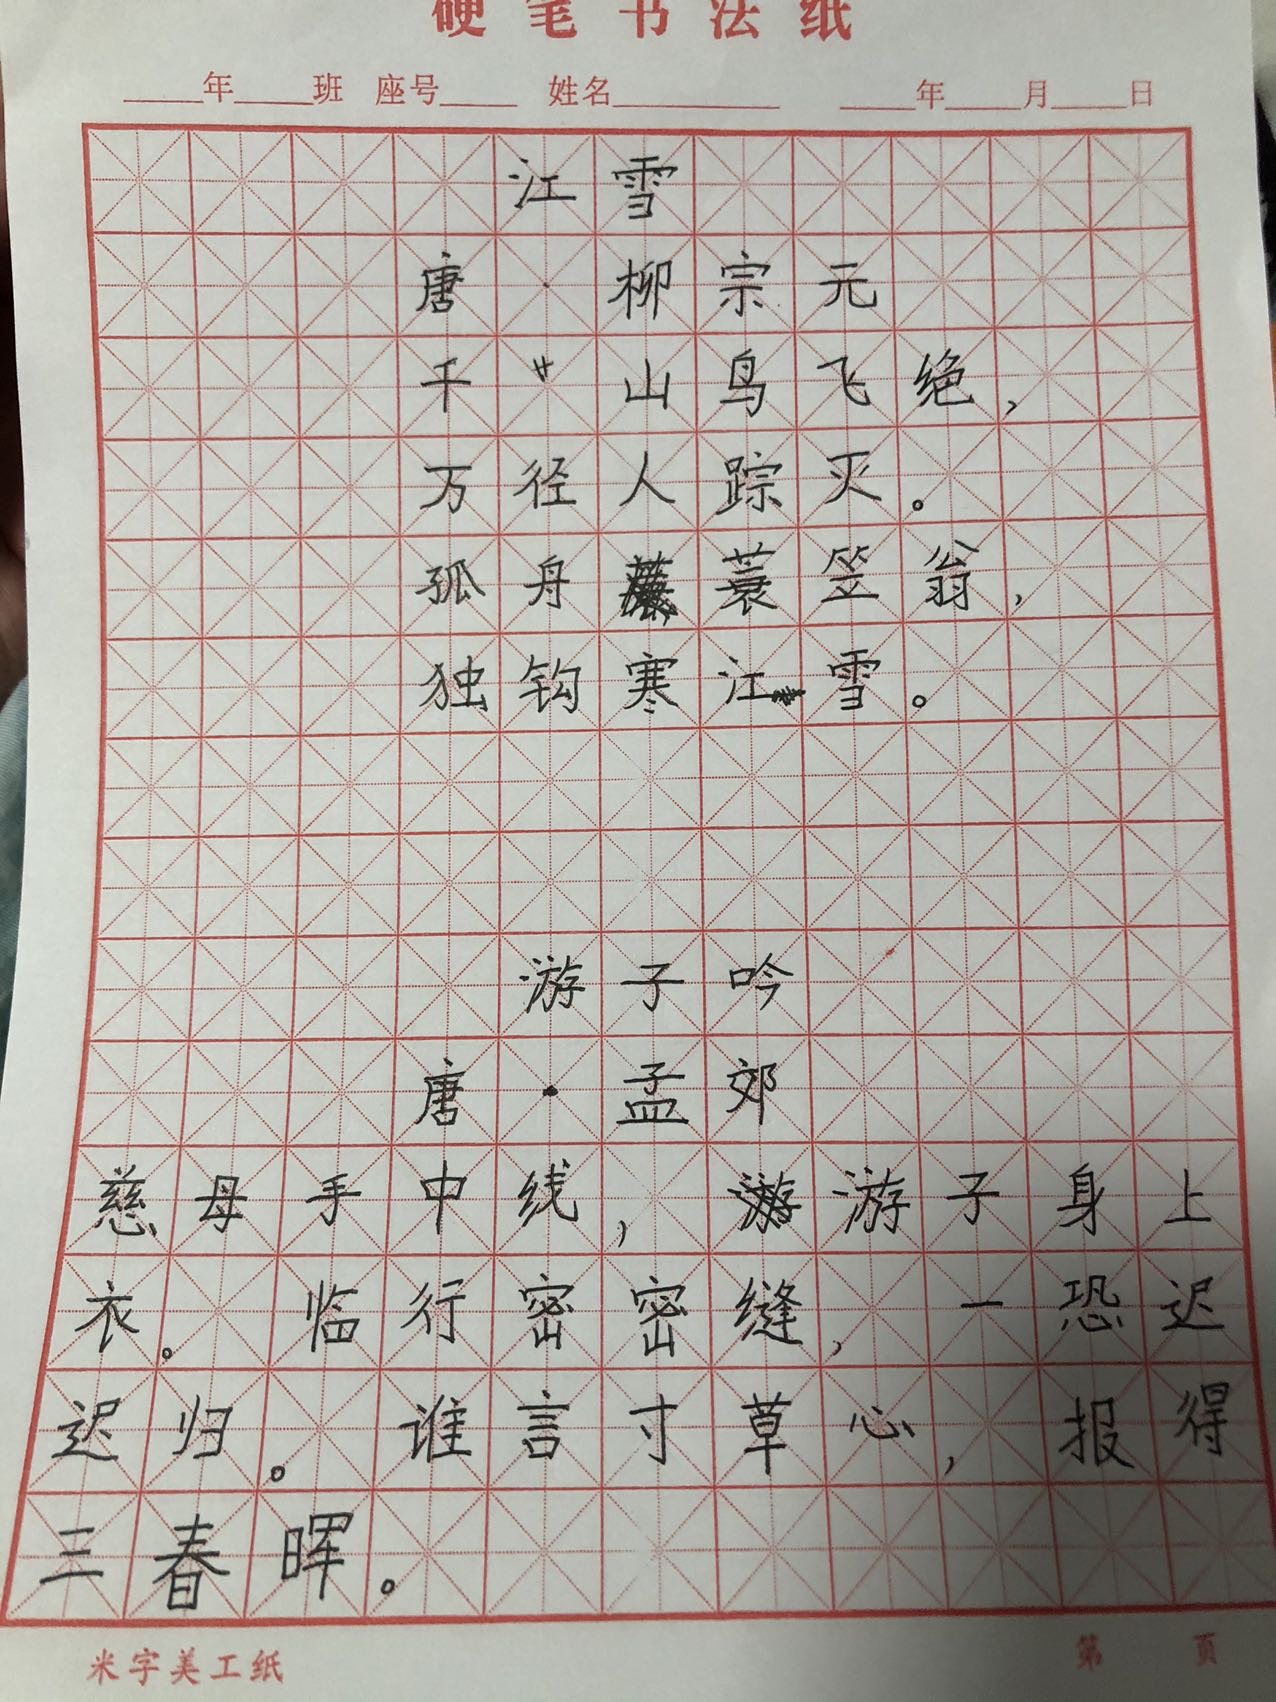 硬笔书法纸
____年____班 座号____ 姓名________ ____年____月____日
江雪
唐·柳宗元
千山鸟飞绝，
万径人踪灭。
孤舟蓑笠翁，
独钩寒江雪。
游子吟
唐·孟郊
慈母手中线，游子身上
衣。临行密密缝，一恐迟
迟归。谁言寸草心，报得
三春晖。
米字美工纸
第 页